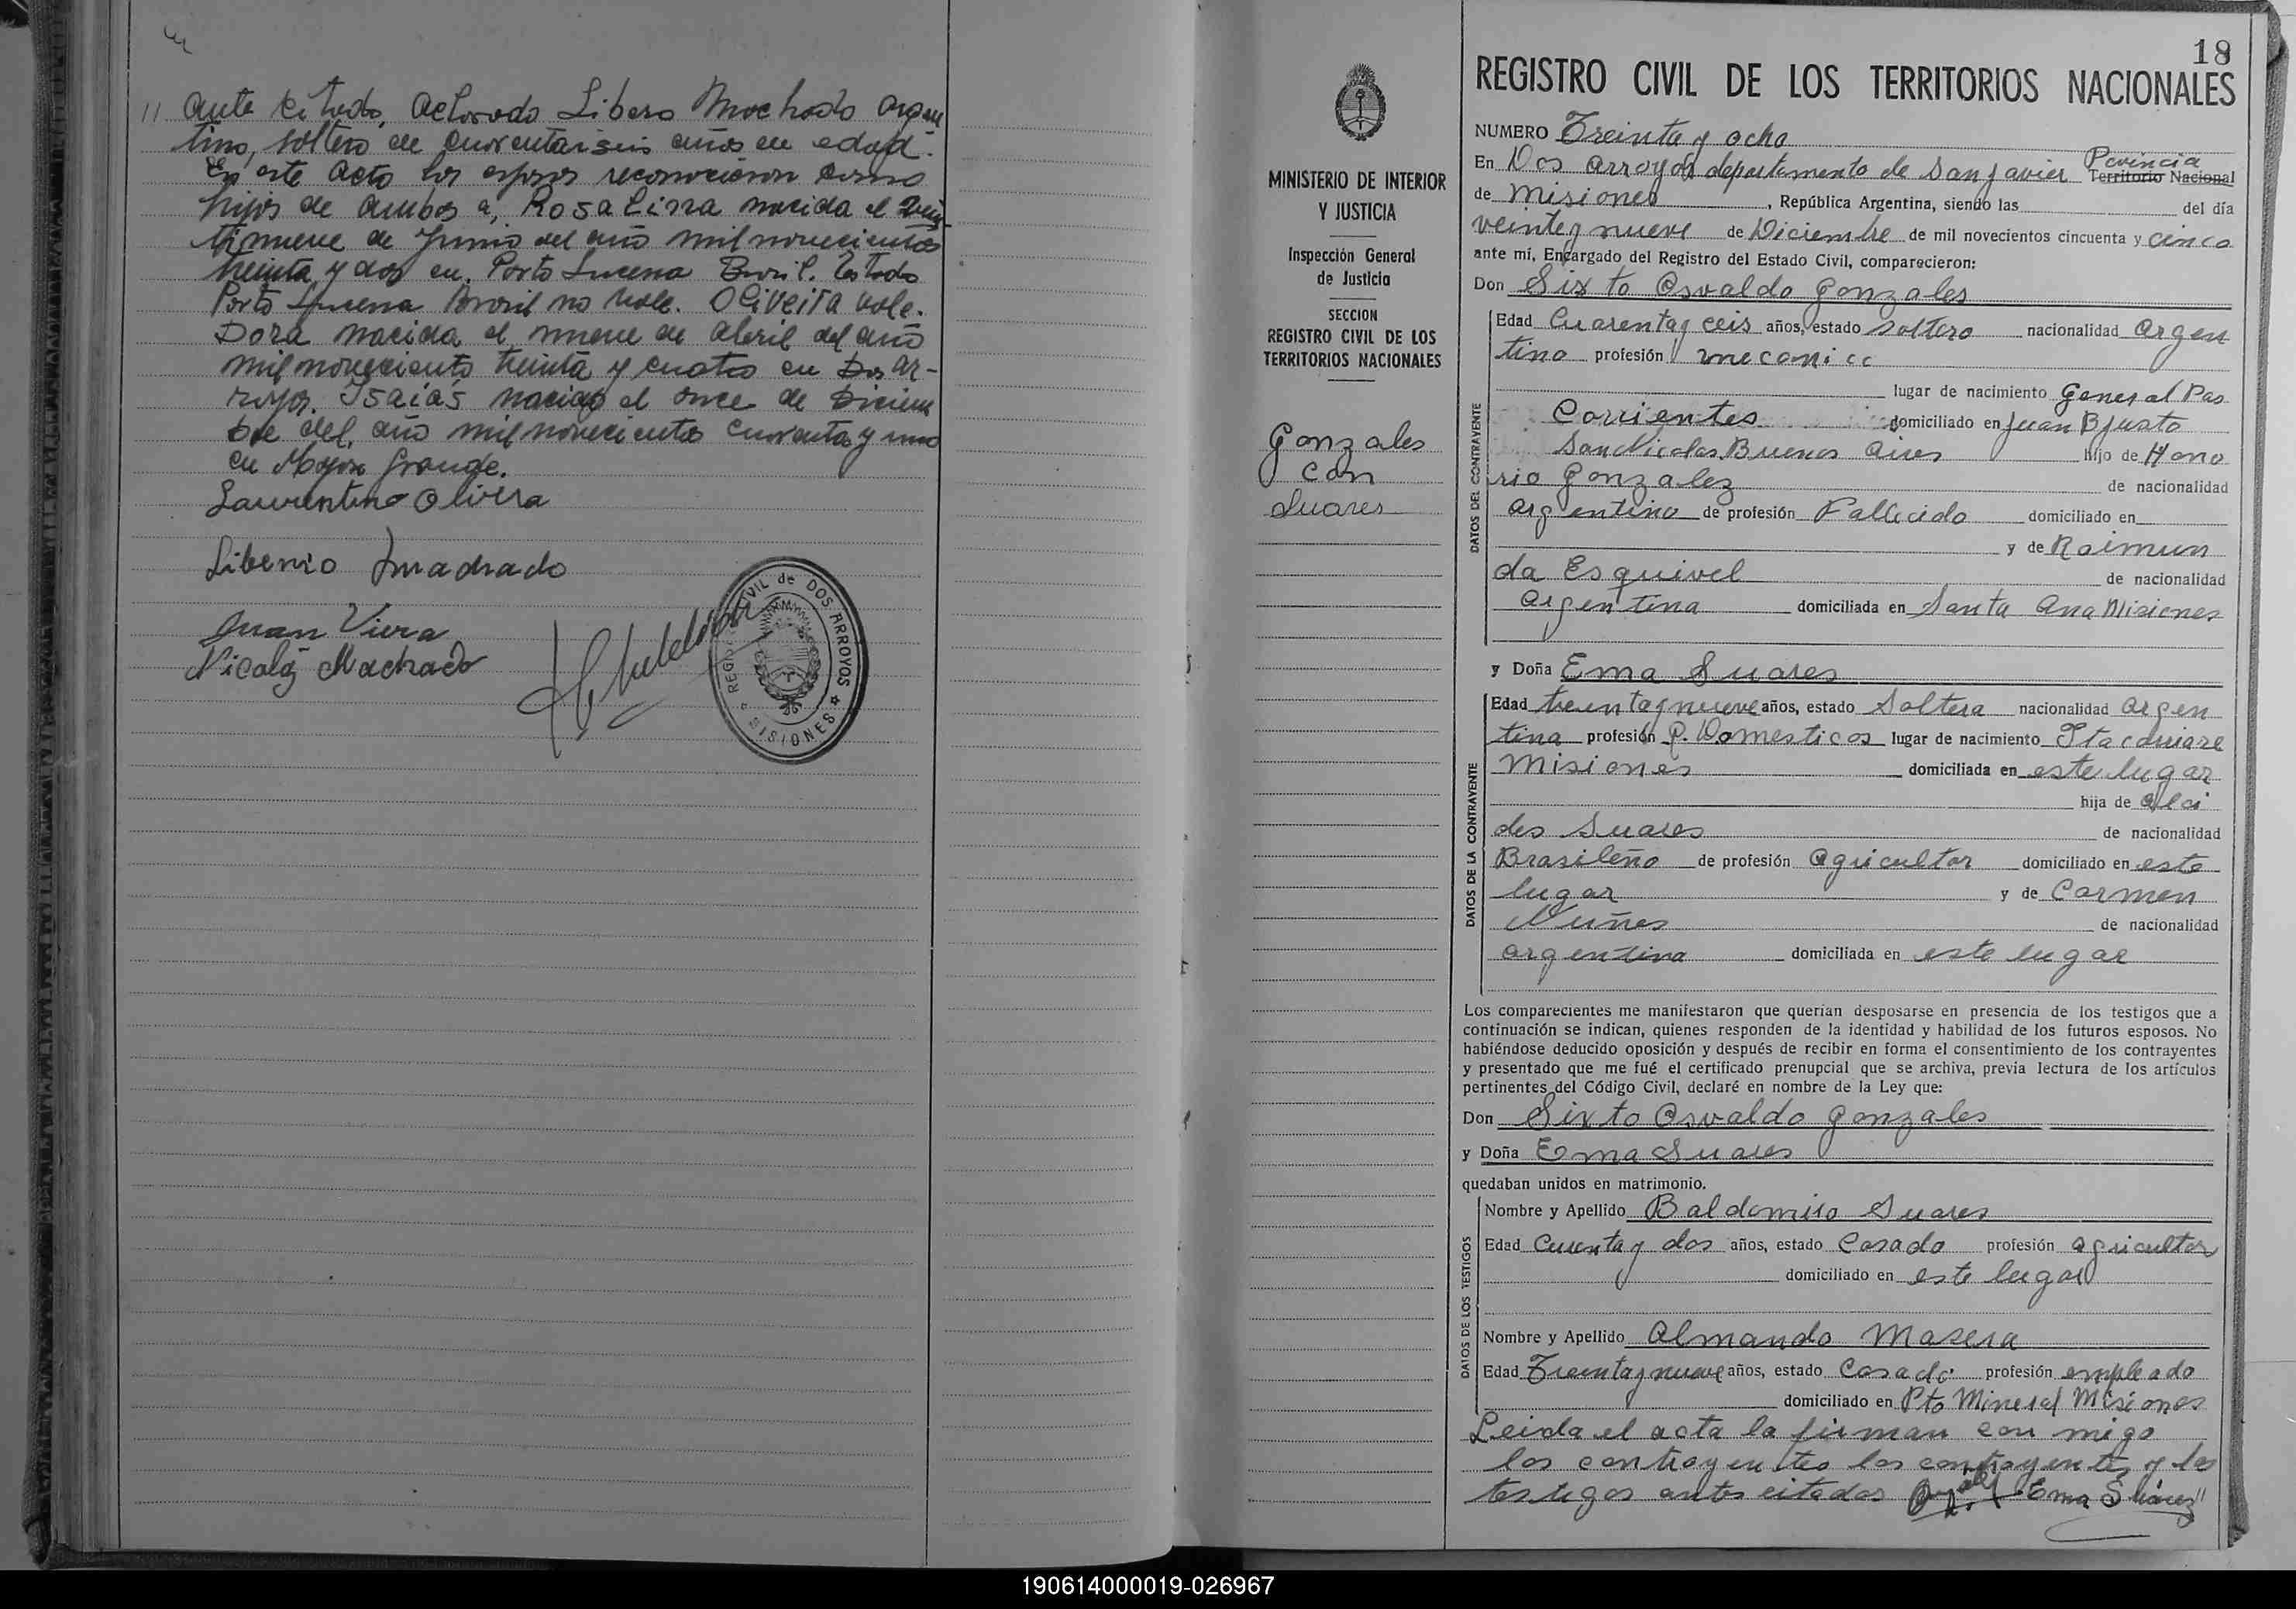 // ante citado, Libero Machado argen
tino, soltero de cuarentaiseis años de edad.
En este acto los esposos reconocieron como
hijos de ambos a, Rosalina nacida el vein
tinueve de Junio del año mil novecientos
treinta y dos en, Porto Lucena Brasil. Estado
Porto Lucena Brasil no vale. Oliveira vale.
Dora nacida el nueve de abril del año
mil novecientos treinta y cuatro en Dos Ar-
royos. Isaías nacido el once de Diciem
bre del año mil novecientos cuarenta y uno
en Grande.
Laurentino Olivera
Libenio Machado
Juan Viera
Nicolas Machado
REGISTRO CIVIL de DOS ARROYOS
MISIONES
18
REGISTRO CIVIL DE LOS TERRITORIOS NACIONALES
MINISTERIO DE INTERIOR
Y JUSTICIA
Inspección General
de Justicia
SECCION
REGISTRO CIVIL DE LOS
TERRITORIOS NACIONALES
Gonzales
con
Suares
NUMERO Treinta y ocho
En Dos Arroyos departamento de San Javier Territorio Nacional Povincia
de Misiones, República Argentina, siendo las del día
veinte y nueve de Diciembre de mil novecientos cincuenta y cinco
ante mí, Encargado del Registro del Estado Civil, comparecieron:
Don Sixto Osvaldo Gonzales
DATOS DEL CONTRAYENTE
Edad Cuarenta y ceis años, estado soltero nacionalidad Argen
tino profesión mecanico
lugar de nacimiento General Pas
Corrientes domiciliado en Juan B Justo
San Nicolas Buenos Aires hijo de Hono
rio Gonzalez de nacionalidad
argentino de profesión Fallecido domiciliado en
y de Raimun
da Esquivel de nacionalidad
Argentina domiciliada en Santa Ana Misiones
y Doña Ema Suares
DATOS DE LA CONTRAYENTE
Edad treinta y nueve años, estado Soltera nacionalidad Argen
tina profesión Q. Domesticos lugar de nacimiento Itacaruare
Misiones domiciliada en este lugar
hija de Alci
des Suares de nacionalidad
Brasileño de profesión Agricultor domiciliado en este
lugar y de Carmen
Nuñes de nacionalidad
argentina domiciliada en este lugar
Los comparecientes me manifestaron que querían desposarse en presencia de los testigos que a
continuación se indican, quienes responden de la identidad y habilidad de los futuros esposos. No
habiéndose deducido oposición y después de recibir en forma el consentimiento de los contrayentes
y presentado que me fué el certificado prenupcial que se archiva, previa lectura de los artículos
pertinentes del Código Civil, declaré en nombre de la Ley que:
Don Sixto Osvaldo Gonzales
y Doña Ema Suares
quedaban unidos en matrimonio.
DATOS DE LOS TESTIGOS
Nombre y Apellido Baldomiro Suares
Edad Cuenta y dos años, estado Casado profesión agricultor
domiciliado en este lugar
Nombre y Apellido Almando Masera
Edad Treinta y nueve años, estado Casado profesión empleado
domiciliado en Pto Mineral Misiones
Leida el acta la firman con migo
los contrayentes los contrayentes y los
testigos antes citados Ema Suarez //
190614000019-026967